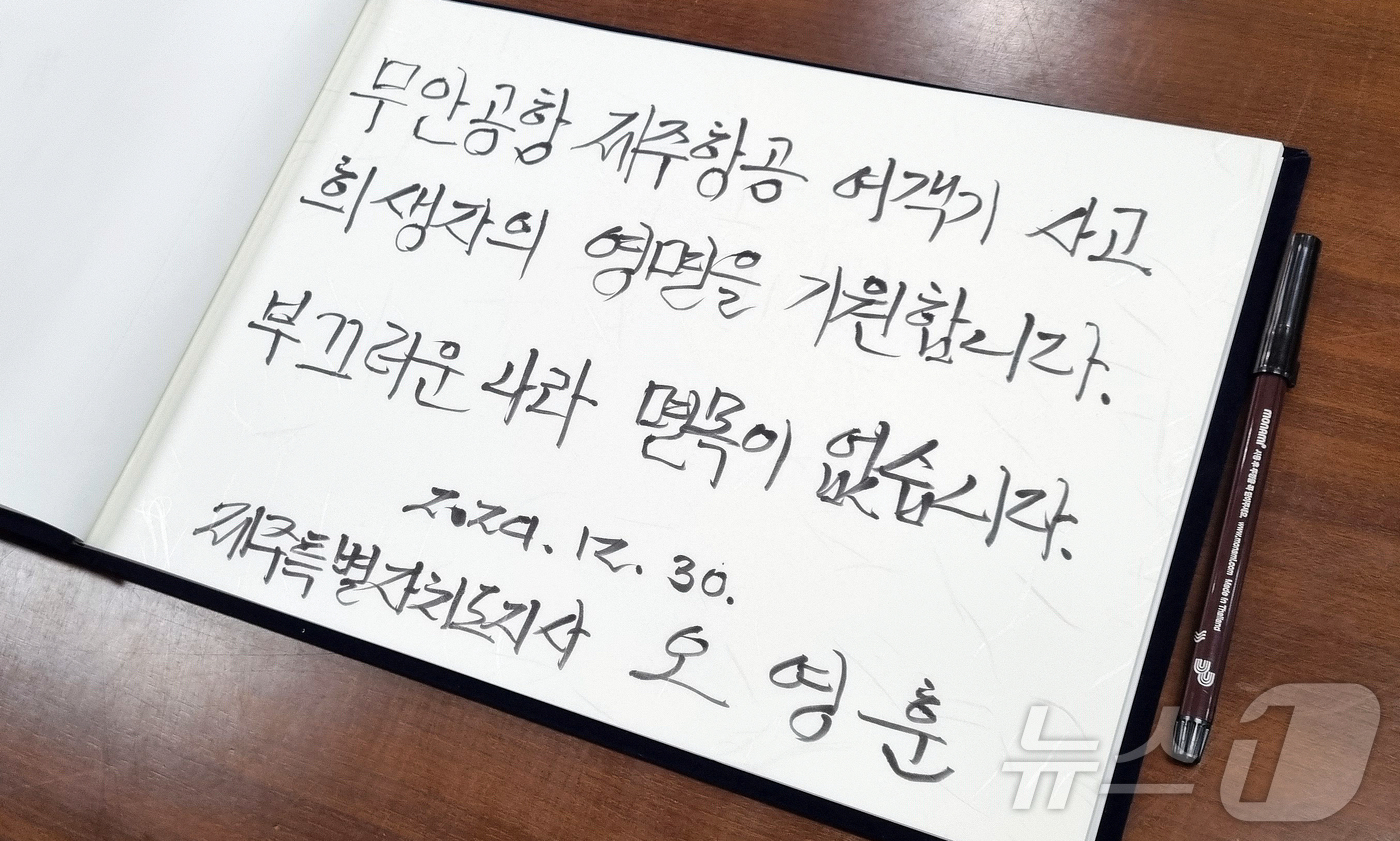 무안공항 제주항공 여객기 사고
희생자의 영면을 기원합니다.
부끄러운 나라 면목이 없습니다.
2024. 12. 30.
제주특별자치도지사 오영훈
monami www.monami.com Made in Thailand
뉴스1